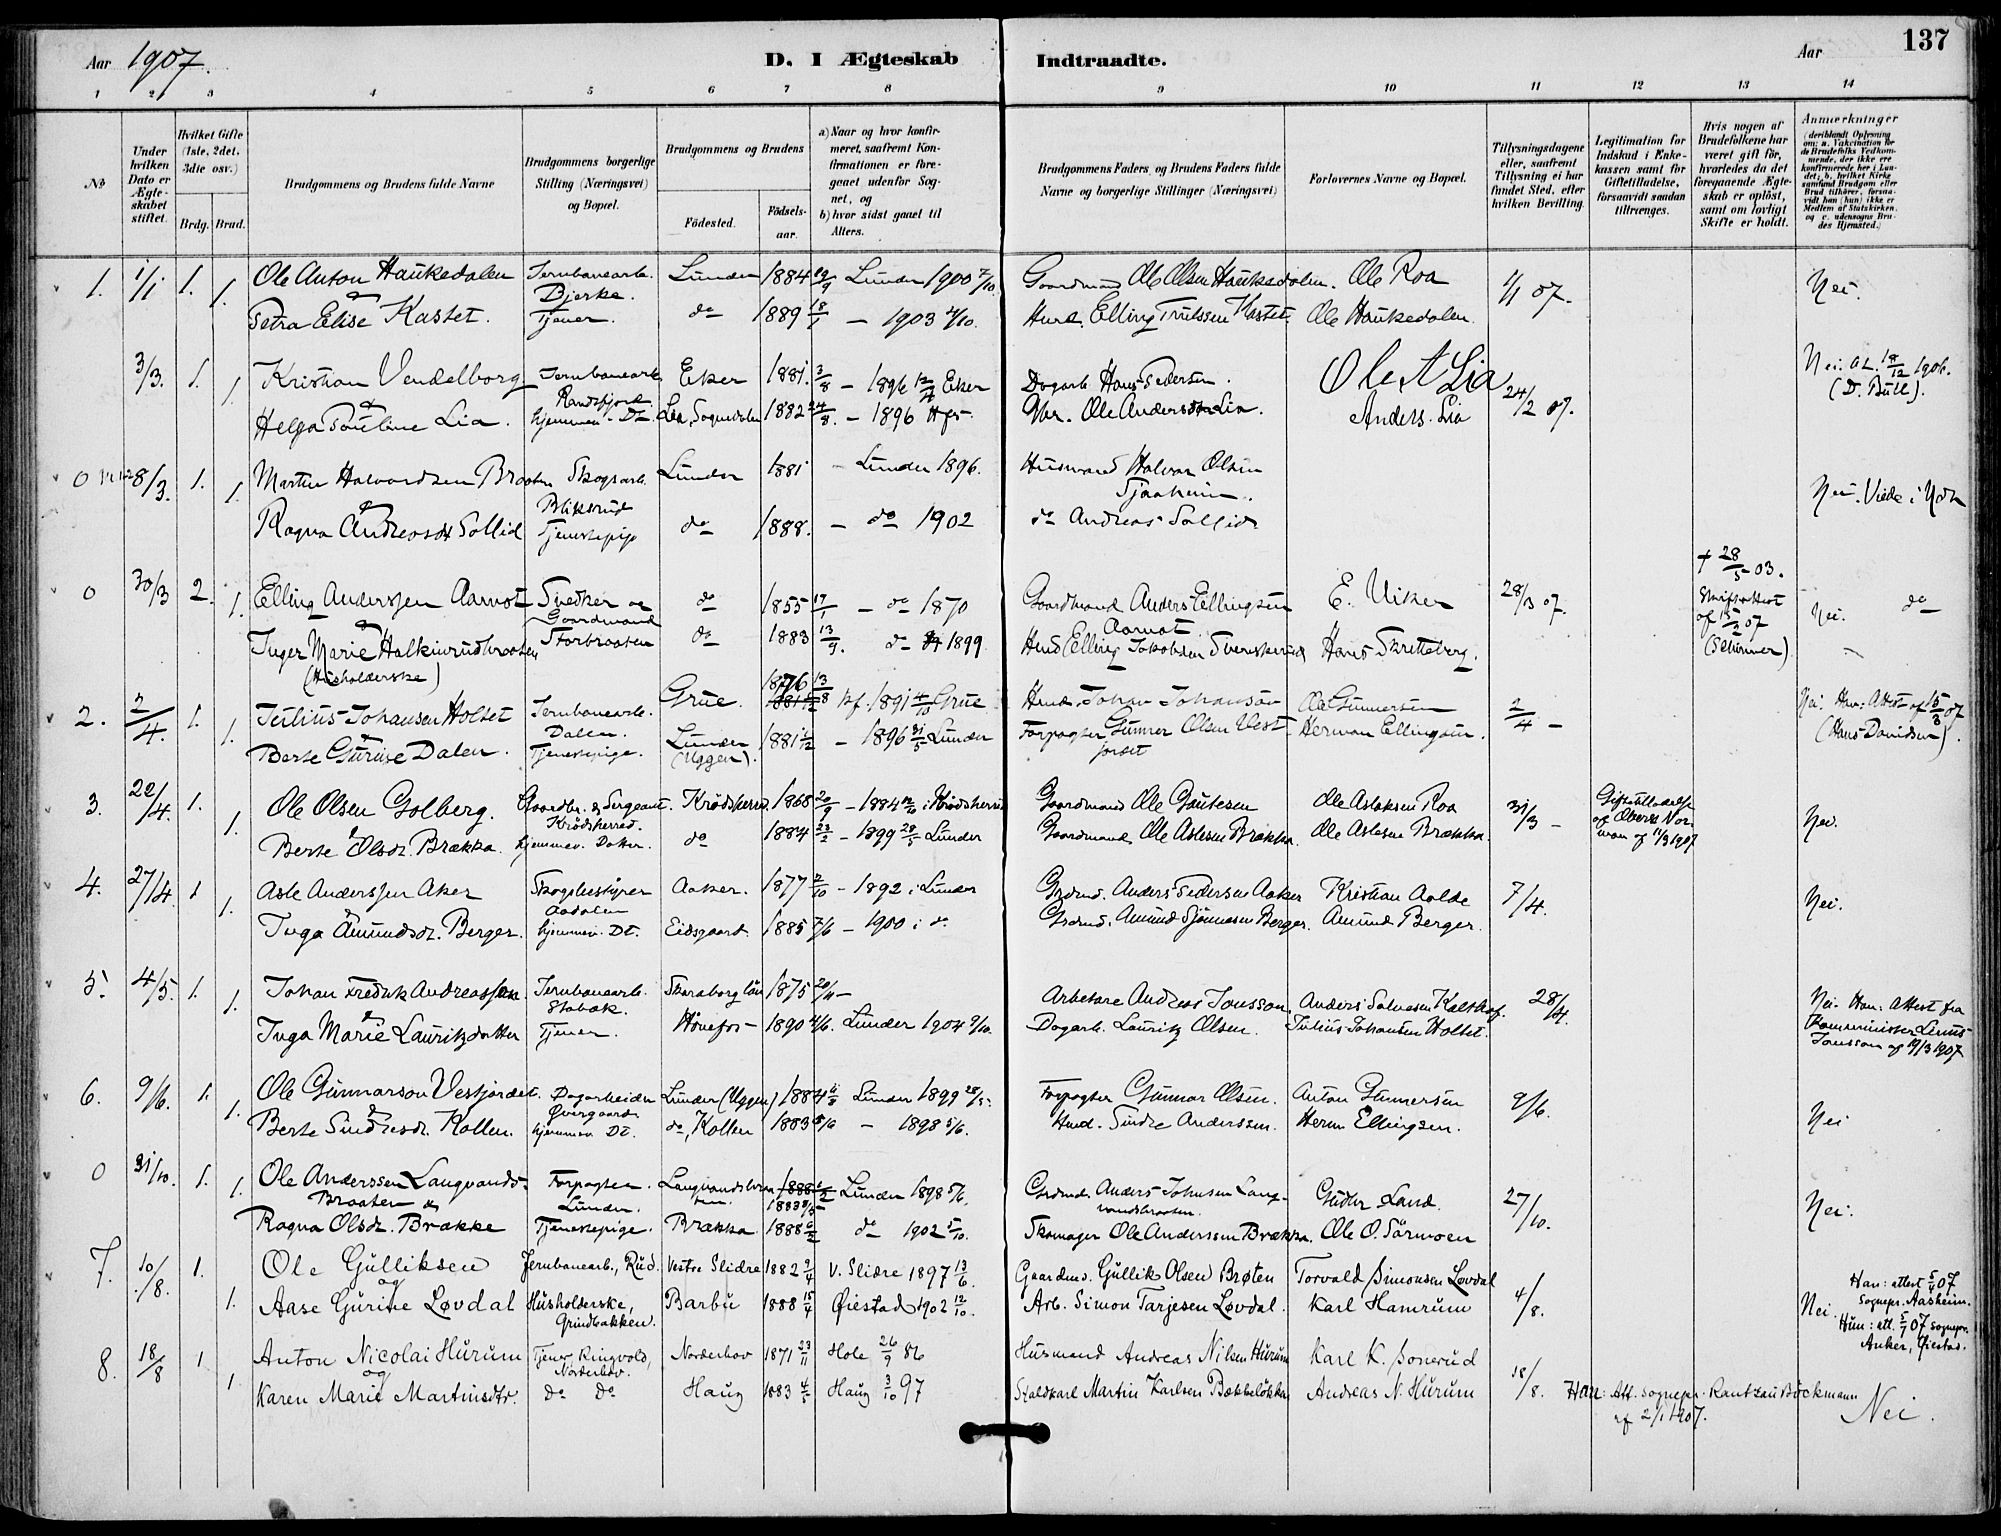 Aar 1907.
D. I Ægteskab Indtraadte.
Aar
137
1 2 3 4 5 6 7 8 9 10 11 12 13 14
No
Under hvilken Dato er Ægteskabet stiftet.
Hvilket Gifte (1ste, 2det, 3die osv.)
Brdg. Brud.
Brudgommens og Brudens fulde Navne
Brudgommens borgerlige Stilling (Næringsvei) og Bopæl.
Brudgommens og Brudens
Födested.
Födselsaar.
a) Naar og hvor konfirmeret, saafremt Konfirmationen er foregaaet udenfor Sognet, og
b) hvor sidst gaaet til Alters.
Brudgommens Faders, og Brudens Faders fulde Navne og borgerlige Stillinger (Næringsvei)
Forlovernes Navne og Bopæl.
Tillysningsdagene eller, saafremt Tillysning ei har fundet Sted, efter hvilken Bevilling.
Legitimation for Indskud i Enkekassen samt for Giftetilladelse, forsaavidt saadan tiltrænges.
Hvis nogen af Brudefolkene har været gift för, hvorledes da det foregaaende Ægteskab er oplöst, samt om lovligt Skifte er holdt.
Anmerkninger
1. 1/1 1. 1. Ole Anton Haukedalen Jernbanearb. Lunder 1884 19/9 Lunder 1900 7/10 Gaardmand Ole Olsen Haukedalen. Ole Roa 1/1 07. Nei.
& Bjerke.
Petra Elise Kastet. Tjener. do 1889 18/1 — 1903 4/10. Husm. Elling Trulssen Kastet. Ole Haukedalen
3/3. 1. 1. Kristian Vendelborg Jernbanearb. Eker 1881. 3/8 — 1896 Eker Dagarb. Hans Pedersen. Ole A Lia 24/2 07. Nei. At. 18/12 1906.
& Randsfjord (D. Bull).
Helga Pauline Lia. hjemmev. Do Lia, Sognedalen 1882 24/8. — 1896 Hfs. Gbr. Ole Anderssen Lia. Anders. Lia
0 8/3. 1. 1. Martin Halvardsen Braaten Skogsarb. Lunder 1881 — Lunder 1896. Husmand Halvor Olsen
& Bliksrud Tjaaheim. Nei. Viede i Ndh
Ragna Andreasdt Sollid Tjenestepige do 1888. — do 1902 do Andreas Sollid
0 30/3 2. 1. Elling Anderssen Aarnot Snedker og do 1855 17/1 — do 1870 Gaardmand Anders Ellingsen E. Viker 28/3 07. + 28/5 03. Nei. do
& Gaardmand Aarnot Skifteattest af 15/2 07
Inger Marie Halkinrudbraaten Storbraaten do 1883 13/9. do 1899 Husm Elling Jakobsen Hans Skretteberg. (Schirmer)
(Husholderske)
2. 2/4. 1. 1. Julius Johansen Holtet Jernbanearb. Grue 1876 13/8 kf. 1891 4/10 Grue Husm. Johan Johanson Ole Gunnersen 2/4 — Nei. Han: Attest af 15/3 07
& Dalen. (Hans Davidsen).
Berte Gurine Dalen. Tjenestepige. Lunder (Uggen). 1881 1/12 — 1896 31/5 Lunder Forpagter Gunner Olsen Vestjordet Herman Ellingsen.
3. 22/4. 1. 1. Ole Olsen Golberg. Gaardbr. & Sergeant. Krödsherred. 1868 20/9 — 1884 12/10 i Krödsherred Gaardmand Ole Gautesen Ole Aslaksen Roa 31/3 — Giftetilladelse af Oberst Norman af 11/3 1907 Nei.
& Krödsherred.
Berte Olsdt. Brækka. hjemmev. Do 1884 22/2 — 1899 28/5 Lunder Gaardmand Ole Aslesen Brækka. Ole Aslesen Brækka.
4. 27/4. 1 1. Asle Anderssen Aker Skogsbestyrer Aaker. 1877 2/10 — 1892 i Lunder Grdmd. Anders Pedersen Aaker Kristian Aolde 7/4. Nei.
& Aadalen
Inga Amundsdt. Berger. hjemmev. Dt. Eidsgaard. 1885 7/6 — 1900 i do Grdmd. Amund Sjönnesen Berger. Amund Berger.
5. 4/5. 1. 1. Johan Fredrik Andreassen Jernbanearb. Skaraborg län 1875 20/11 — Arbetare Andreas Jonsson Anders Salvesen 28/4. Nei. Han: Attest fra
& Stabæk. Komminister Linus
Inga Marie Lauritzdatter Tjener. Hönefos — 1890 4/6. Lunder 1904 9/10. Dagarb. Lauritz Olsen. Julius Johansen Holtet. Jonsson af 19/3 1907
6. 9/6. 1. 1. Ole Gunnarson Vestjordet. Dagarbeider Lunder (Uggen) 1884 Lunder 1899 28/5. Forpagter Gunnar Olsen. Anton Gunnersen 9/6. Nei
& Övergaard.
Berte Sindresdt. Kollen. hjemmev. Dt. do, Kollen 1883 — 1898 5/6. Husmd. Sindre Anderssen. Herm Ellingsen.
0 31/10. 1. 1. Ole Anderssen Langvands- Forpagter. 1888 Lunder 1898 5/6. Grdmd. Anders Johnsen Lang- 27/10. Nei.
Braaten & Lunder. 1883 vandsbraaten.
Ragna Olsdt. Brække Tjenestepige. Brækka 1888 6/2 do 1902 5/10. Skomager Ole Anderssen Brækka. Ole O. Sörmoen
7. 10/8. 1. 1. Ole Gulliksen Jernbanearb., Rud. Vestre Slidre 1882 9/4 V. Slidre 1897 13/6. Gaardmd. Gullik Olsen Brøten Torvald Simonsen Løvdal 4/8. Nei. Han: attest 5/7 07
og sognepr. Aasheim.
Aase Gurine Løvdal Husholderske, Grindbakken. Barbu 1888 15/4 Øiestad 1902 12/10. Arb. Simon Tarjesen Løvdal. Karl Hamrum Hun: att. 5/7 07 sognepr.
Anker, Øiestad.
8. 18/8 1. 1 Anton Nicolai Hurum Tjener Ringvold, Norderhov. Norderhov 1871 23/11 Hole 26/9 86 Husmand Andreas Nilsen Hurum Karl K. Bonerud 18/8. Han: Att. sognepr. Rantzau Böckmann
og af 2/1 1907.
Karen Marie Martinsdtr. do do Haug 1883 4/5 Haug 3/10 97 Staldkarl Martin Karlsen Bækkeløkken Andreas N. Hurum Nei.